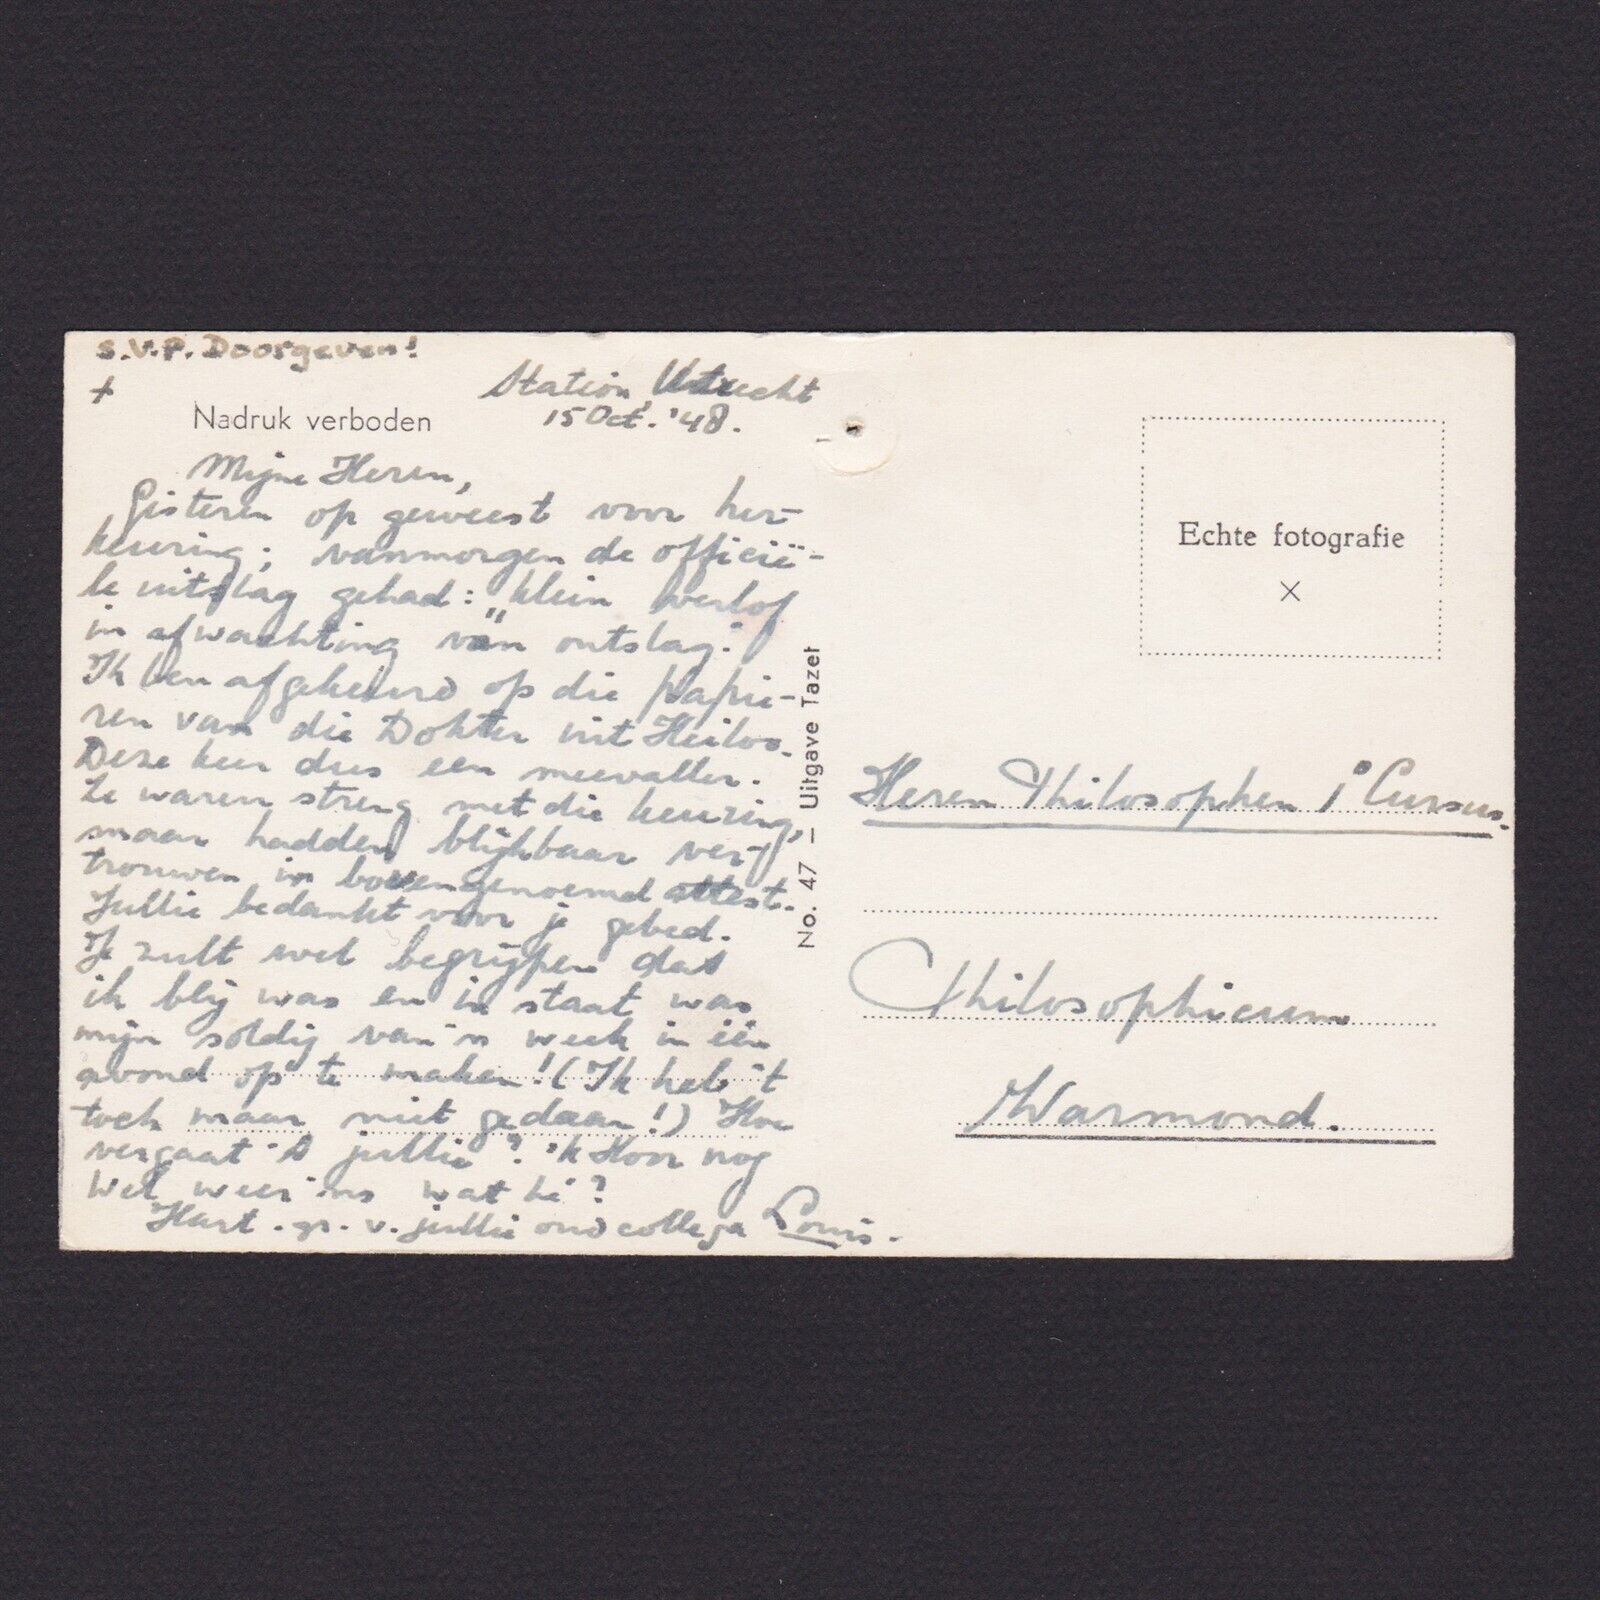 S.V.P. Doorgeven!
+
Station Utrecht
15 Oct. '48.
Nadruk verboden
Mijne Heren,
Gisteren op geweest voor her-
keuring; vanmorgen de officië-
le uitslag gehad: "klein verlof
in afwachting van ontslag."
Ik ben afgekeurd op die papie-
ren van die Dokter uit Heiloo.
Deze keer dus een meevaller.
Ze waren streng met die keuring,
maar hadden blijkbaar ver-
trouwen in bovengenoemd attest.
Jullie bedankt voor je gebed.
Je zult wel begrijpen dat
ik blij was en in staat was
mijn soldij van 'n week in één
avond op te maken! (Ik heb 't
toch maar niet gedaan!) Hoe
vergaat 't jullie? 'k Hoor nog
wel weer 'ns wat hè?
Hart. gr. v. jullie oud collega Louis.
No. 47 – Uitgave Tazet
Echte fotografie
X
Heren Philosophen 1° Cursus.
Philosophicum
Warmond.